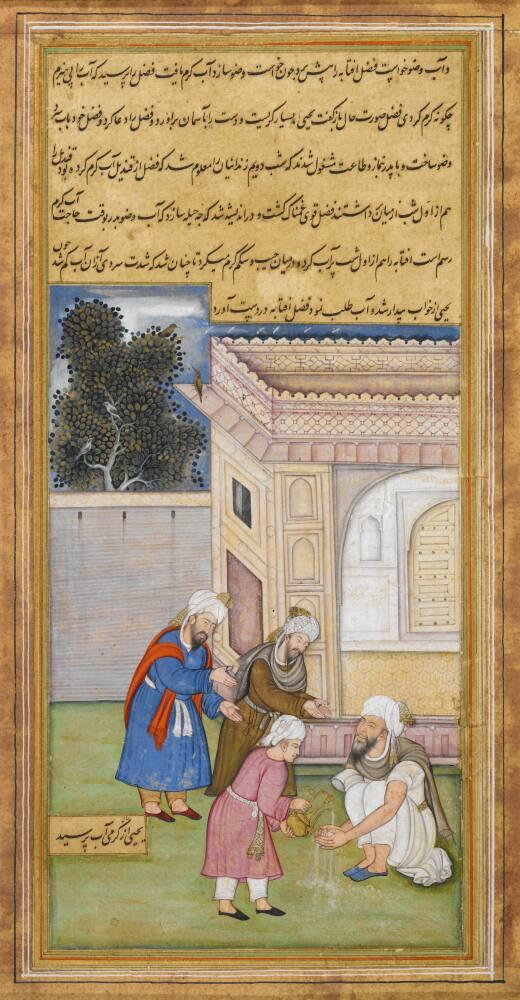 و آب وضو خواست فضل آفتابه را پیش برد چون خواست وضو سازد آب گرم یافت فضل را پرسید که آب را
چگونه گرم کردی فضل صورت حال باز گفت یحیی بسیار گریست و دست را بآسمان برآورد و فضل را دعا کرد و فضل
وضو ساخت و با پدر نماز و طاعت مشغول شدند که شب دویم زندانیان را معلوم شد که فضل از قندیل آب گرم کرده بود قندیل را
هم از اول شب از میان برداشتند فضل قوی غمناک گشت و در اندیشه شد که چه حیله سازد که آب وضوء پدر بوقت حاجت گرم
است آفتابه را هم از اول شب پر آب کرد و در میان جیب و شکم گرم میکرد تا چنان شد که شدت سردی از آن آب کم شد چون
یحیی از خواب بیدار شد و آب طلب نمود فضل آفتابه در دست آورد
یحیی از گرمی آب پرسید